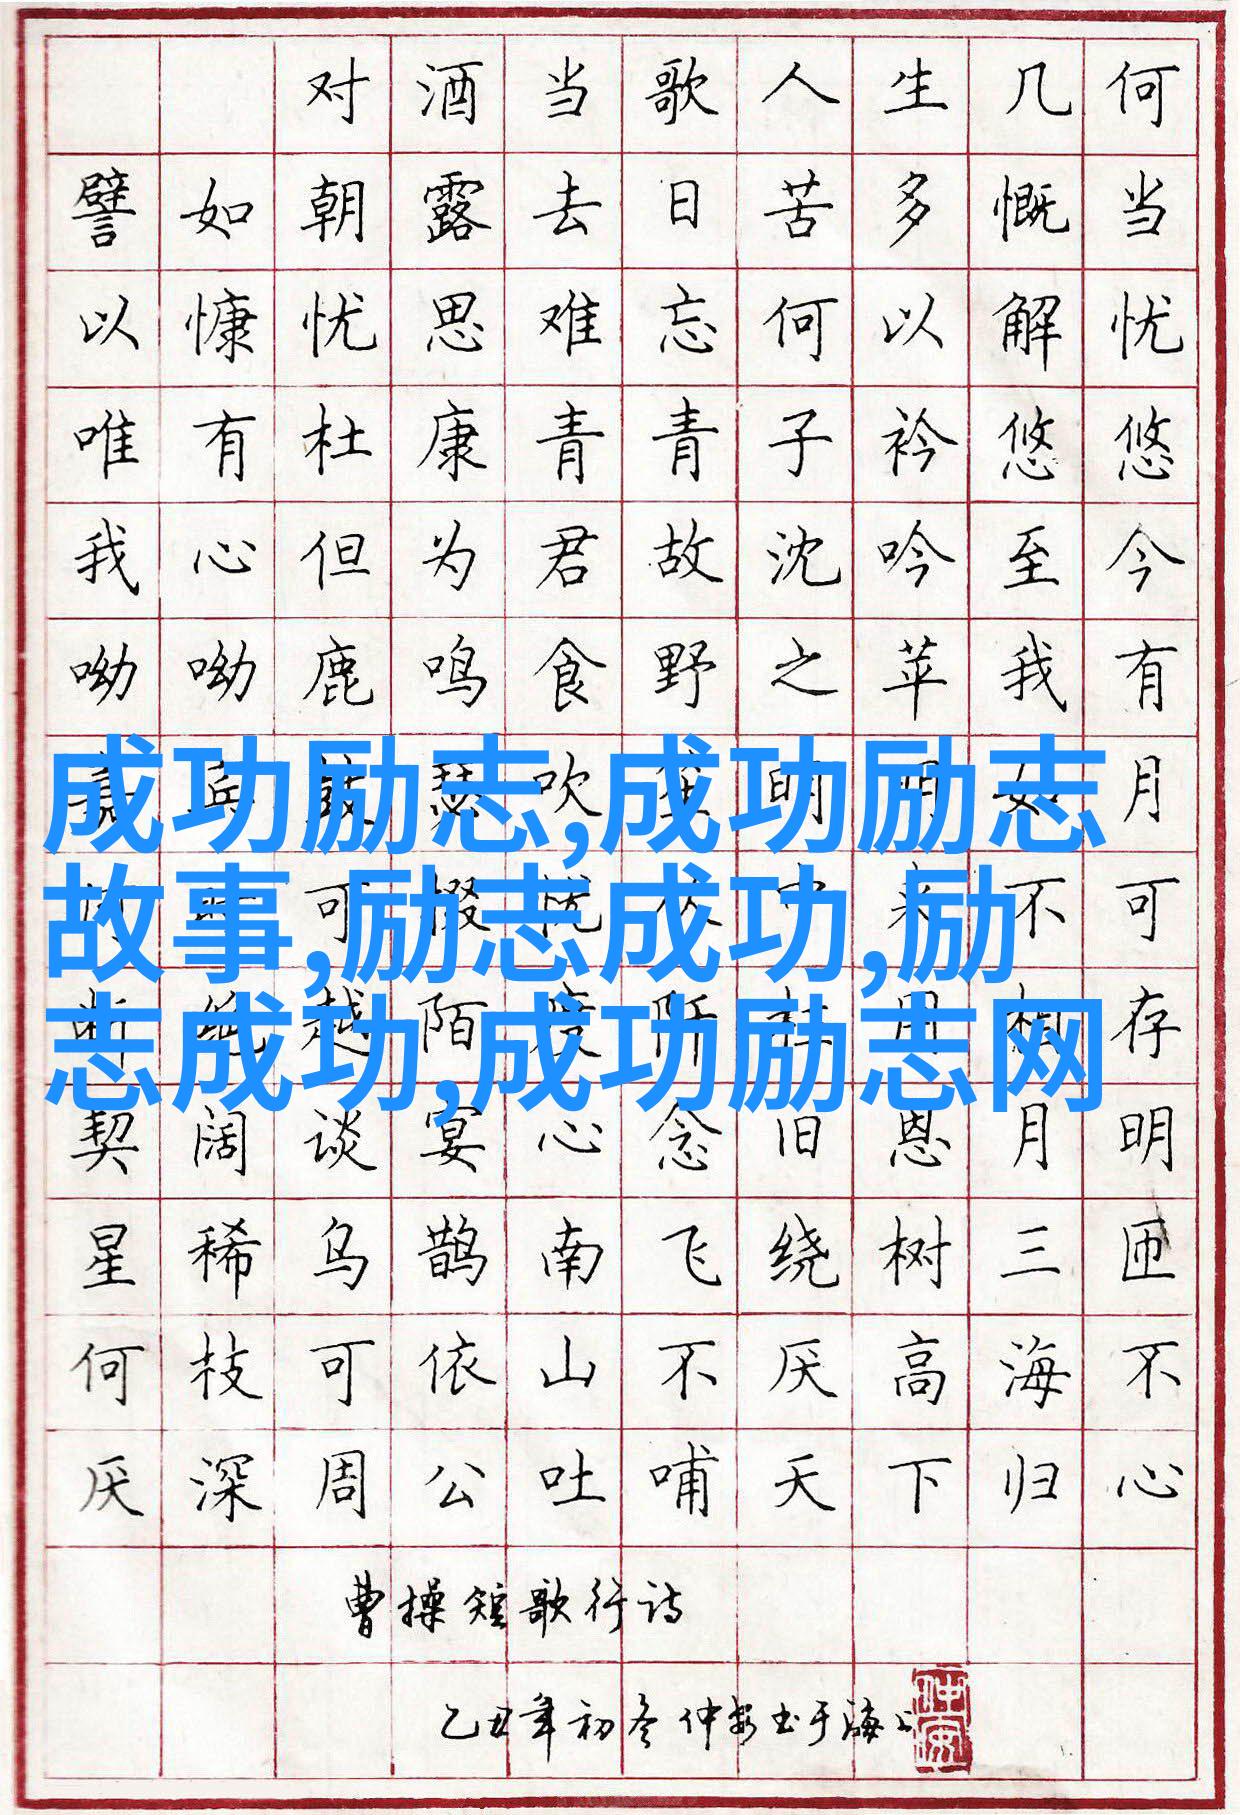 对酒当歌人生几何
譬如朝露去日苦多慨当
以慷忧思难忘何以解忧
唯有杜康青青子衿悠悠
我心但为君故沈吟至今
呦呦鹿鸣食野之苹我有
嘉宾鼓瑟吹笙明明如月
成功励志,成功励志
何时可掇忧从中来不可
故事,励志成功,励
断绝越陌度阡枉用相存
志成功,成功励志网
契阔谈宴心念旧恩月明
星稀乌鹊南飞绕树三匝
何枝可依山不厌高海不
厌深周公吐哺天下归心
曹操短歌行诗
乙丑年初冬仲安书于海上
仲安